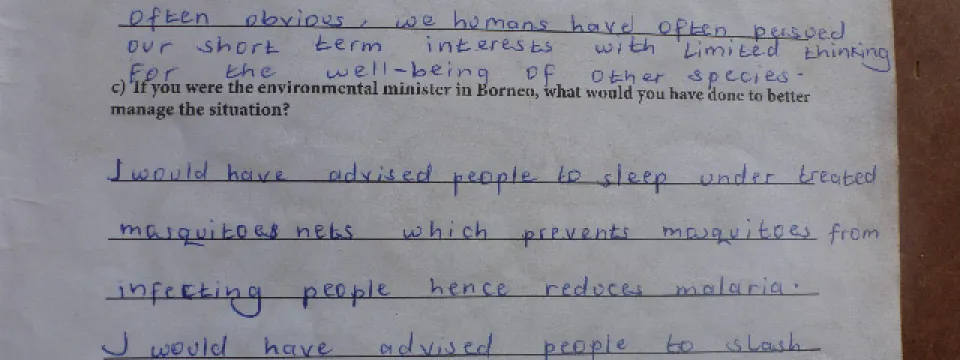 often obvious, we humans have often persoed
our short term interests with Limited thinking
For the well-being of other species.
c) If you were the environmental minister in Borneo, what would you have done to better
manage the situation?
I would have advised people to sleep under treated
masquitoes nets which prevents masquitoes from
infecting people hence reduces malaria.
I would have advised people to slash